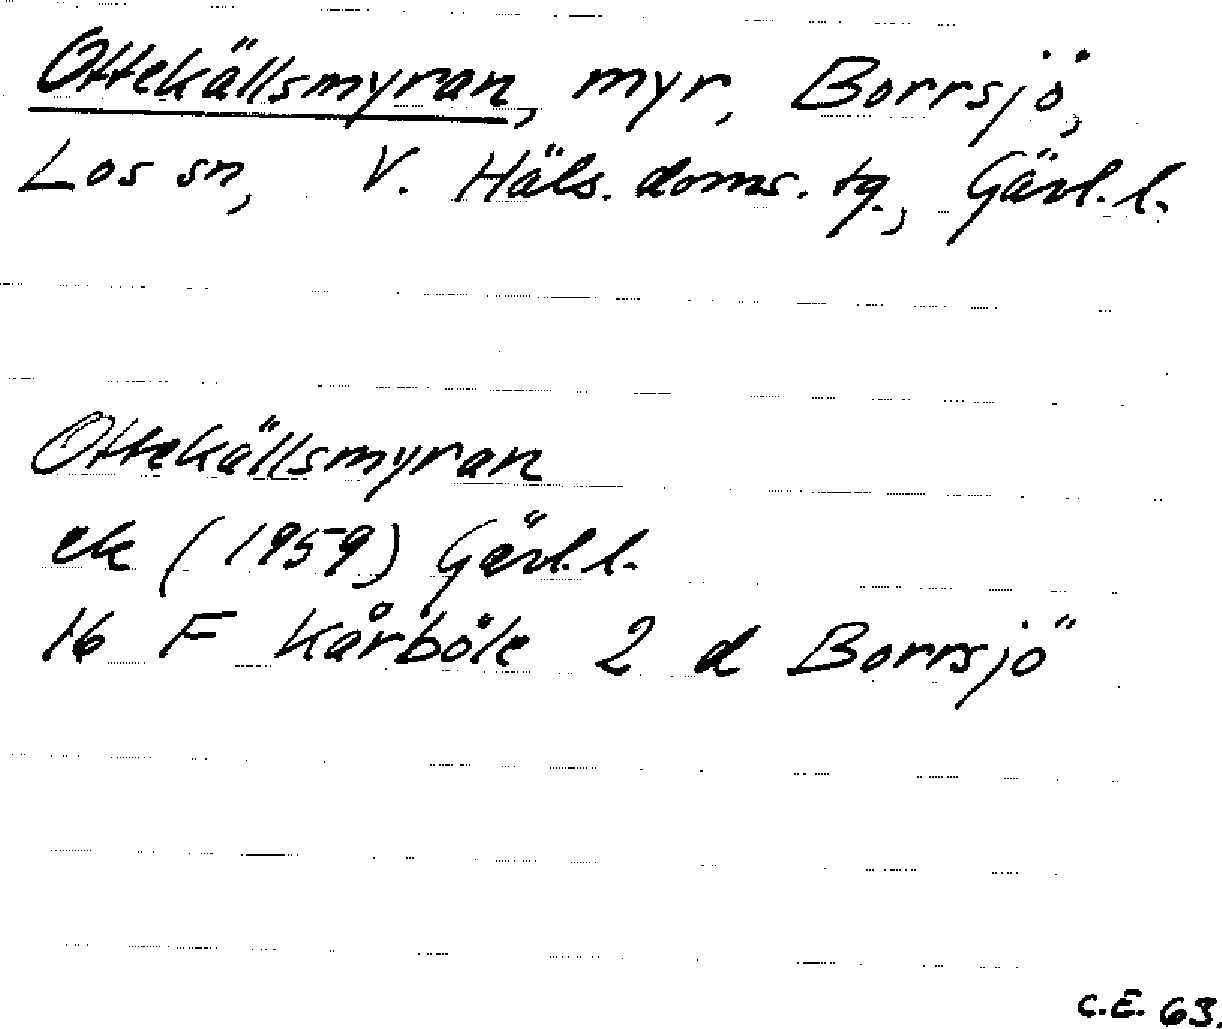 Ottekällsmyran, myr, Borrsjö,
Los sn, V. Häls. doms. tg., Gävl. l.
Ottekällsmyran
ek (1959) Gävl. l.
16 F Kårböle 2 d Borrsjö
C.E. 63.